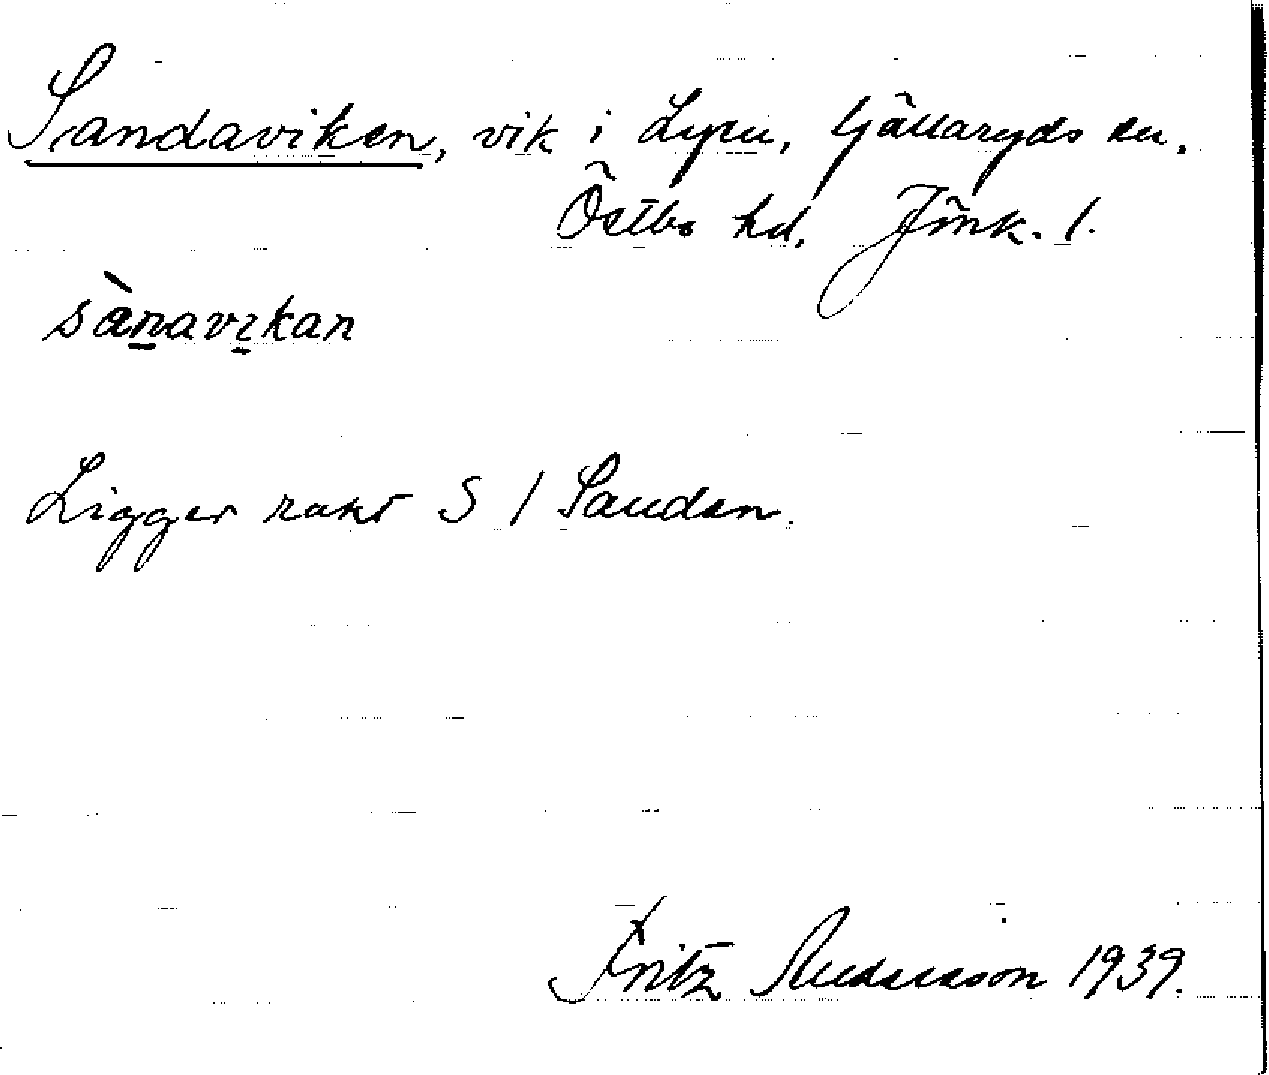 Sandaviken, vik i Lyen, Gällaryds sn.
Östbo hd, Jönk. l.
sànavikan
Ligger rakt S / Sanden.
Fritz Andersson 1939.